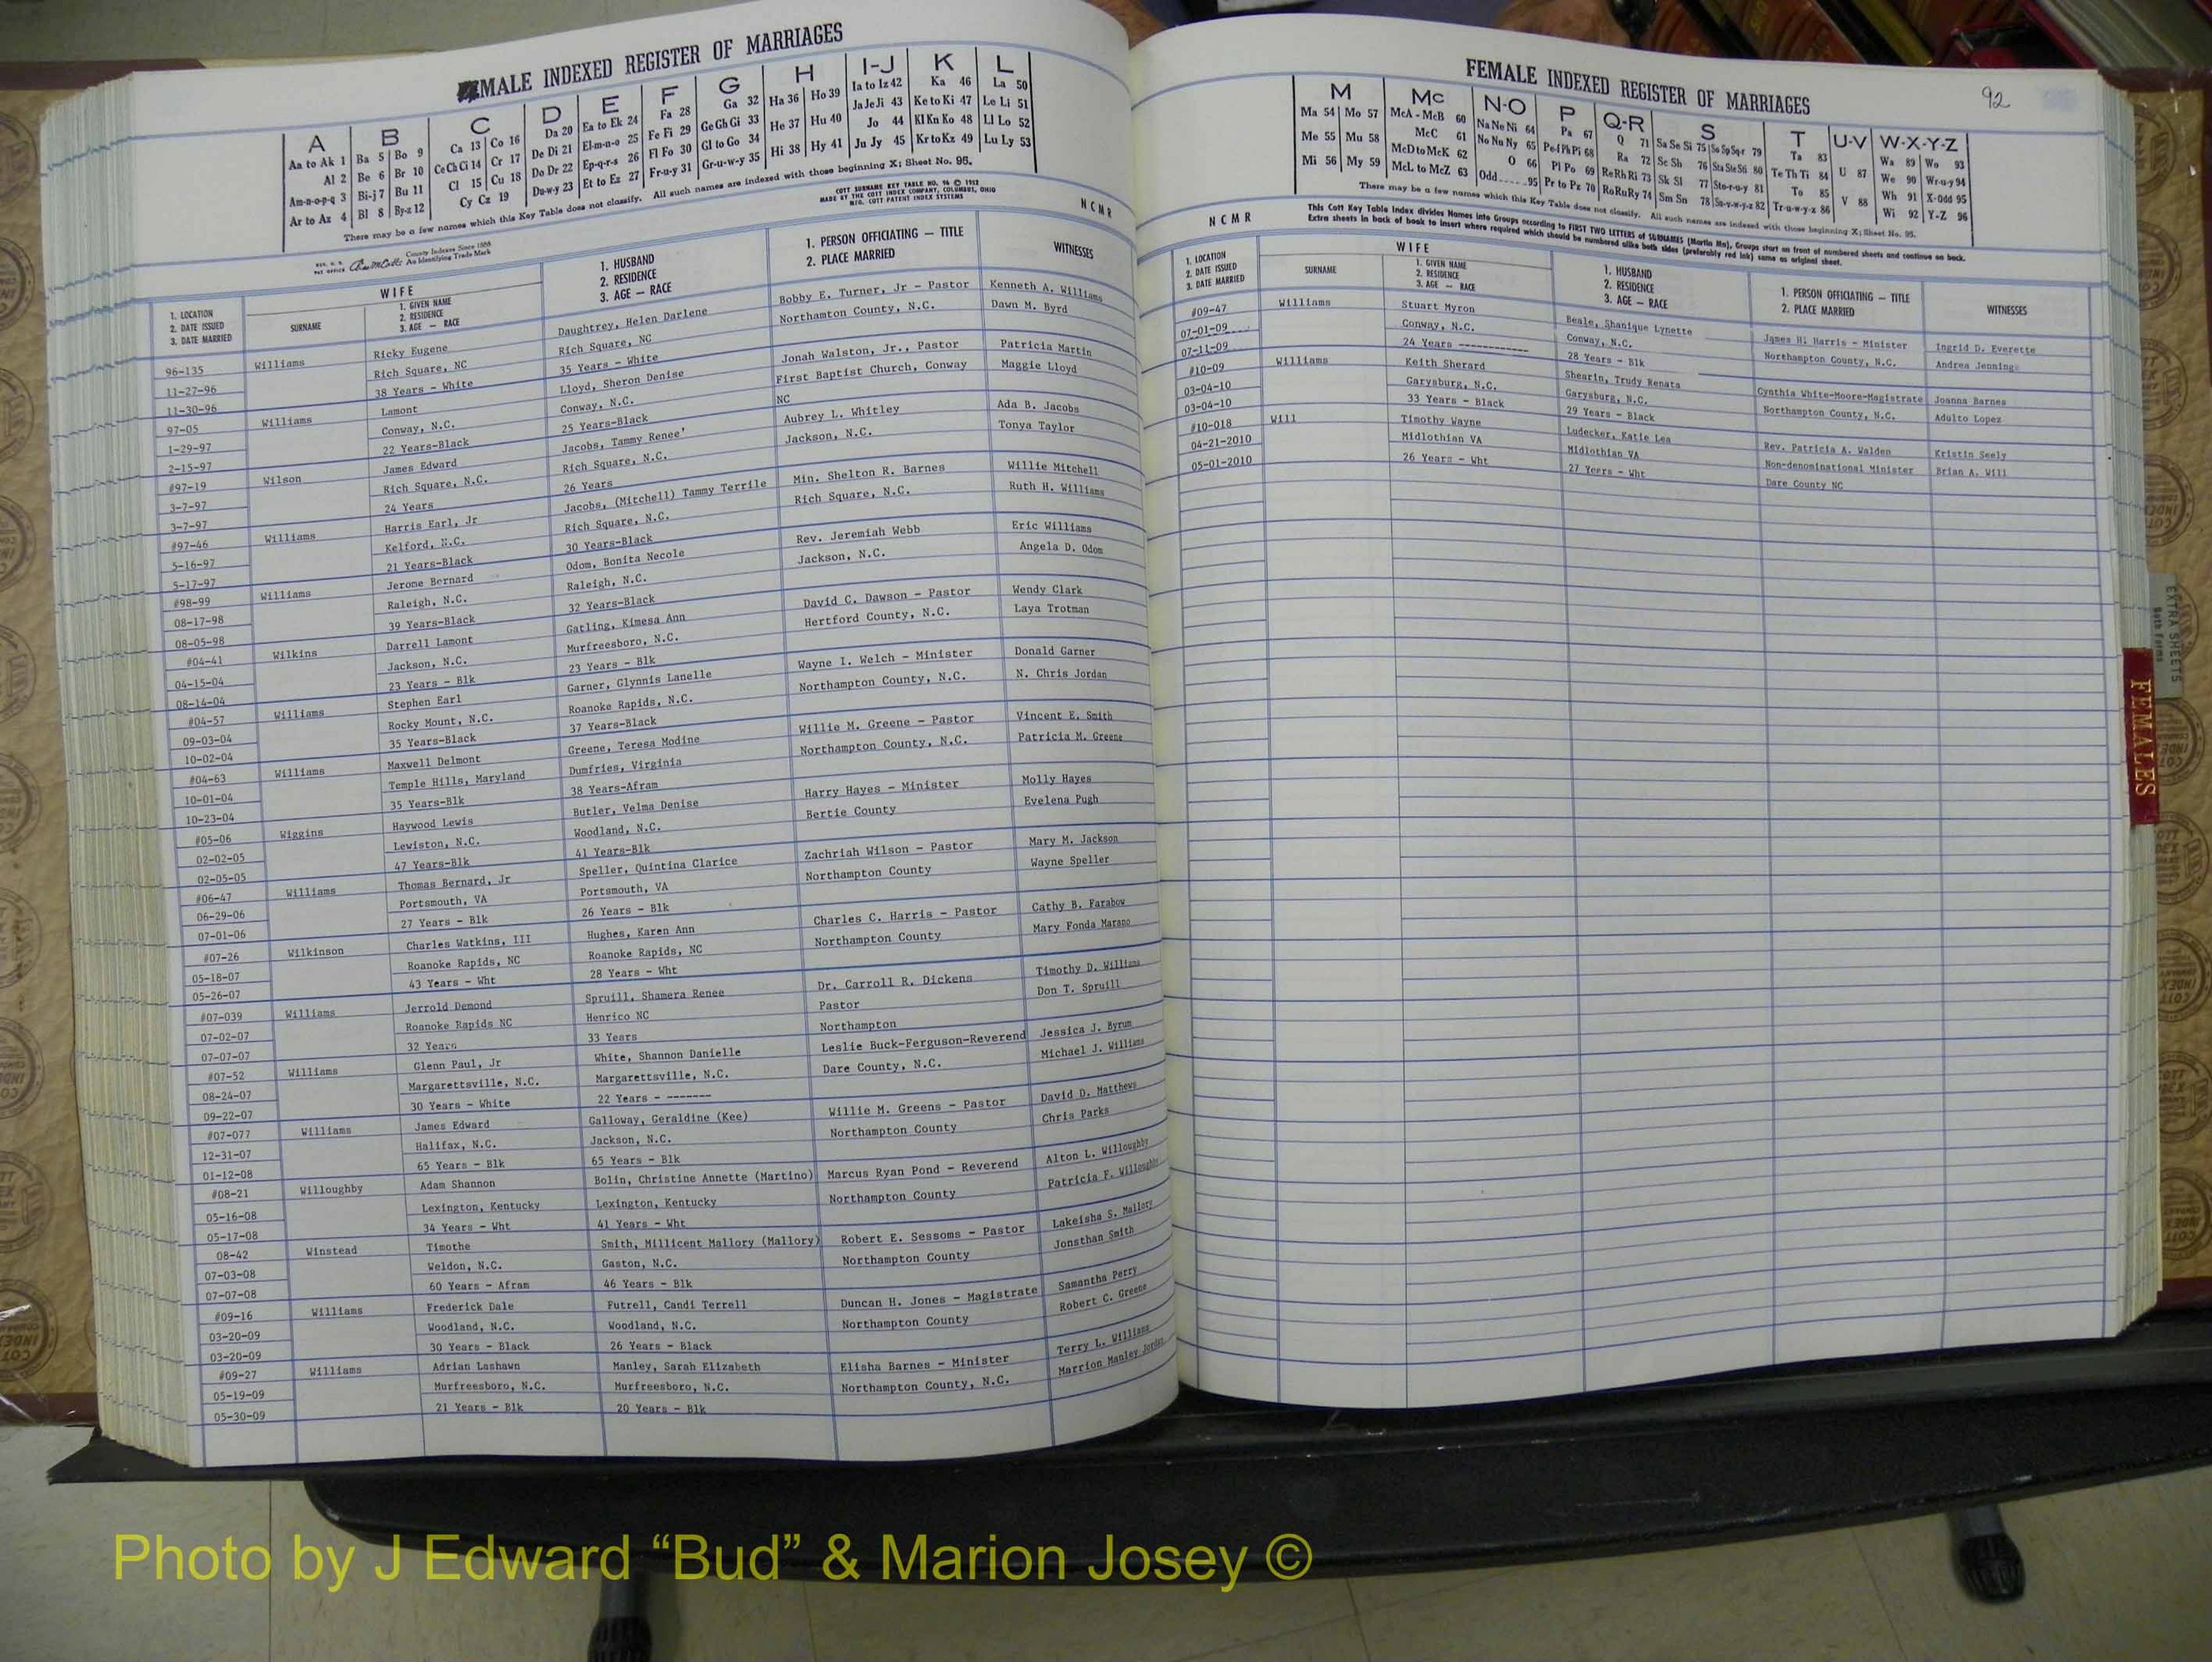 MALE INDEXED REGISTER OF MARRIAGES
A B C D E F G H I-J K L
Aa to Ak 1 Ba 5 Bo 9 Ca 13 Co 16 Da 20 Ea to Ek 24 Fa 28 Ga 32 Ha 36 Ho 39 Ia to Iz 42 Ka 46 La 50
Al 2 Be 6 Br 10 Ce Ch Ci 14 Cr 17 De Di 21 El-m-n-o 25 Fe Fi 29 Ge Gh Gi 33 He 37 Hu 40 Ja Je Ji 43 Ke to Ki 47 Le Li 51
Am-n-o-p-q 3 Bi-j 7 Bu 11 Cl 15 Cu 18 Do Dr 22 Ep-q-r-s 26 Fl Fo 30 Gl to Go 34 Hi 38 Hy 41 Jo 44 Kl Kn Ko 48 Ll Lo 52
Ar to Az 4 Bl 8 By-z 12 Cy Cz 19 Du-w-y 23 Et to Ez 27 Fr-u-y 31 Gr-u-w-y 35 Ju Jy 45 Kr to Kz 49 Lu Ly 53
There may be a few names which this Key Table does not classify. All such names are indexed with those beginning X; Sheet No. 95.
COTT SURNAME KEY TABLE NO. 96 © 1952
MADE BY THE COTT INDEX COMPANY, COLUMBUS, OHIO
MFG. COTT PATENT INDEX SYSTEMS
County Indexes Since 1888
An Identifying Trade Mark
NCMR
1. LOCATION
2. DATE ISSUED
3. DATE MARRIED
WIFE
SURNAME
1. GIVEN NAME
2. RESIDENCE
3. AGE — RACE
1. HUSBAND
2. RESIDENCE
3. AGE — RACE
1. PERSON OFFICIATING — TITLE
2. PLACE MARRIED
WITNESSES
96-135 Williams Ricky Eugene Daughtrey, Helen Darlene Bobby E. Turner, Jr - Pastor Kenneth A. Williams
11-27-96 Rich Square, NC Rich Square, NC Northamton County, N.C. Dawn M. Byrd
11-30-96 38 Years - White 35 Years - White
97-05 Williams Lamont Lloyd, Sheron Denise Jonah Walston, Jr., Pastor Patricia Martin
1-29-97 Conway, N.C. Conway, N.C. First Baptist Church, Conway Maggie Lloyd
2-15-97 22 Years-Black 25 Years-Black NC
#97-19 Wilson James Edward Jacobs, Tammy Renee' Aubrey L. Whitley Ada B. Jacobs
3-7-97 Rich Square, N.C. Rich Square, N.C. Jackson, N.C. Tonya Taylor
3-7-97 24 Years 26 Years
#97-46 Williams Harris Earl, Jr Jacobs, (Mitchell) Tammy Terrile Min. Shelton R. Barnes Willie Mitchell
5-16-97 Kelford, N.C. Rich Square, N.C. Rich Square, N.C. Ruth H. Williams
5-17-97 21 Years-Black 30 Years-Black
#98-99 Williams Jerome Bernard Odom, Bonita Necole Rev. Jeremiah Webb Eric Williams
08-17-98 Raleigh, N.C. Raleigh, N.C. Jackson, N.C. Angela D. Odom
08-05-98 39 Years-Black 32 Years-Black
#04-41 Wilkins Darrell Lamont Gatling, Kimesa Ann David C. Dawson - Pastor Wendy Clark
04-15-04 Jackson, N.C. Murfreesboro, N.C. Hertford County, N.C. Laya Trotman
08-14-04 23 Years - Blk 23 Years - Blk
#04-57 Williams Stephen Earl Garner, Glynnis Lanelle Wayne I. Welch - Minister Donald Garner
09-03-04 Rocky Mount, N.C. Roanoke Rapids, N.C. Northampton County, N.C. N. Chris Jordan
10-02-04 35 Years-Black 37 Years-Black
#04-63 Williams Maxwell Delmont Greene, Teresa Modine Willie M. Greene - Pastor Vincent E. Smith
10-01-04 Temple Hills, Maryland Dumfries, Virginia Northampton County, N.C. Patricia M. Greene
10-23-04 35 Years-Blk 38 Years-Afram
#05-06 Wiggins Haywood Lewis Butler, Velma Denise Harry Hayes - Minister Molly Hayes
02-02-05 Lewiston, N.C. Woodland, N.C. Bertie County Evelena Pugh
02-05-05 47 Years-Blk 41 Years-Blk
#06-47 Williams Thomas Bernard, Jr Speller, Quintina Clarice Zachriah Wilson - Pastor Mary M. Jackson
06-29-06 Portsmouth, VA Portsmouth, VA Northampton County Wayne Speller
07-01-06 27 Years - Blk 26 Years - Blk
#07-26 Wilkinson Charles Watkins, III Hughes, Karen Ann Charles C. Harris - Pastor Cathy B. Farabow
05-18-07 Roanoke Rapids, NC Roanoke Rapids, NC Northampton County Mary Fonda Marano
05-26-07 43 Years - Wht 28 Years - Wht
#07-039 Williams Jerrold Demond Spruill, Shamera Renee Dr. Carroll R. Dickens Timothy D. Williams
07-02-07 Roanoke Rapids NC Henrico NC Pastor Don T. Spruill
07-07-07 32 Years 33 Years Northampton
#07-52 Williams Glenn Paul, Jr White, Shannon Danielle Leslie Buck-Ferguson-Reverend Jessica J. Byrum
08-24-07 Margarettsville, N.C. Margarettsville, N.C. Dare County, N.C. Michael J. Williams
09-22-07 30 Years - White 22 Years - -------
#07-077 Williams James Edward Galloway, Geraldine (Kee) Willie M. Greens - Pastor David D. Matthews
12-31-07 Halifax, N.C. Jackson, N.C. Northampton County Chris Parks
01-12-08 65 Years - Blk 65 Years - Blk
#08-21 Willoughby Adam Shannon Bolin, Christine Annette (Martino) Marcus Ryan Pond - Reverend Alton L. Willoughby
05-16-08 Lexington, Kentucky Lexington, Kentucky Northampton County Patricia F. Willoughby
05-17-08 34 Years - Wht 41 Years - Wht
08-42 Winstead Timothe Smith, Millicent Mallory (Mallory) Robert E. Sessoms - Pastor Lakeisha S. Mallory
07-03-08 Weldon, N.C. Gaston, N.C. Northampton County Jonsthan Smith
07-07-08 60 Years - Afram 46 Years - Blk
#09-16 Williams Frederick Dale Futrell, Candi Terrell Duncan H. Jones - Magistrate Samantha Perry
03-20-09 Woodland, N.C. Woodland, N.C. Northampton County Robert C. Greene
03-20-09 30 Years - Black 26 Years - Black
#09-27 Williams Adrian Lashawn Manley, Sarah Elizabeth Elisha Barnes - Minister Terry L. Williams
05-19-09 Murfreesboro, N.C. Murfreesboro, N.C. Northampton County, N.C. Marrion Manley Jordan
05-30-09 21 Years - Blk 20 Years - Blk
FEMALE INDEXED REGISTER OF MARRIAGES
92
M Mc N-O P Q-R S T U-V W-X-Y-Z
Ma 54 Mo 57 McA - McB 60 Na Ne Ni 64 Pa 67 Q 71 Sa Se Si 75 So Sp Sq-r 79 Ta 83 Wa 89 Wo 93
Me 55 Mu 58 McC 61 No Nu Ny 65 Pe-f Ph Pi 68 Ra 72 Sc Sh 76 Sta Ste Sti 80 Te Th Ti 84 U 87 We 90 Wr-u-y 94
Mi 56 My 59 McD to McK 62 O 66 Pl Po 69 Re Rh Ri 73 Sk Sl 77 Sto-r-u-y 81 To 85 V 88 Wh 91 X-Odd 95
McL to McZ 63 Odd 95 Pr to Pz 70 Ro Ru Ry 74 Sm Sn 78 Su-v-w-y-z 82 Tr-u-w-y-z 86 Wi 92 Y-Z 96
There may be a few names which this Key Table does not classify. All such names are indexed with those beginning X; Sheet No. 95.
This Cott Key Table Index divides Names into Groups according to FIRST TWO LETTERS of SURNAMES (Martin Ma), Groups start on front of numbered sheets and continue on back.
Extra sheets in back of book to insert where required which should be numbered alike both sides (preferably red ink) same as original sheet.
NCMR
1. LOCATION
2. DATE ISSUED
3. DATE MARRIED
WIFE
SURNAME
1. GIVEN NAME
2. RESIDENCE
3. AGE — RACE
1. HUSBAND
2. RESIDENCE
3. AGE — RACE
1. PERSON OFFICIATING — TITLE
2. PLACE MARRIED
WITNESSES
#09-47 Williams Stuart Myron Beale, Shanique Lynette James H. Harris - Minister Ingrid D. Everette
07-01-09 Conway, N.C. Conway, N.C. Northampton County, N.C. Andrea Jennings
07-11-09 24 Years ------------ 28 Years - Blk
#10-09 Williams Keith Sherard Shearin, Trudy Renata Cynthia White-Moore-Magistrate Joanna Barnes
03-04-10 Garysburg, N.C. Garysburg, N.C. Northampton County, N.C. Adulto Lopez
03-04-10 33 Years - Black 29 Years - Black
#10-018 Will Timothy Wayne Ludecker, Katie Lea Rev. Patricia A. Walden Kristin Seely
04-21-2010 Midlothian VA Midlothian VA Non-denominational Minister Brian A. Will
05-01-2010 26 Years - Wht 27 Years - Wht Dare County NC
EXTRA SHEETS
FEMALES
Photo by J Edward “Bud” & Marion Josey ©